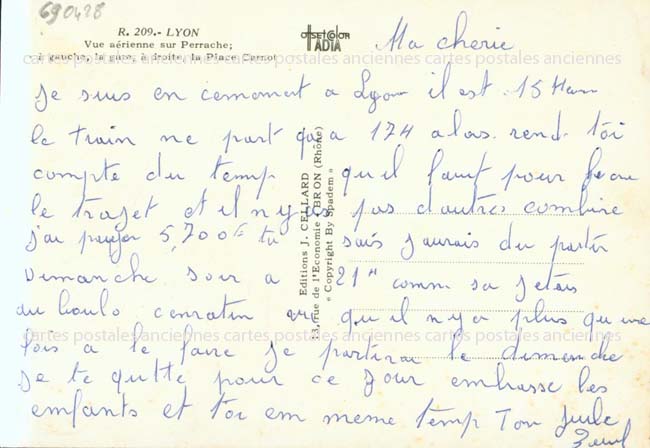 690428
R. 209.- LYON
Vue aérienne sur Perrache;
à gauche, la gare, à droite, la Place Carnot
OFFSET COLOR
IADIA
Ma cherie
cartes postales anciennes cartes postales anciennes cartes postales anciennes
je suis en ce moment a Lyon il est 15H
le train ne part qu a 17H alors rend toi
compte du temp qu il faut pour faire
le trajet et il n y a pas d'autres combine
j'ai payer 5,700F tu sais j'aurais du partir
Dimanche soir a 21H comm sa j etais
au boulo qu il n y a plus qu une
cartes postales anciennes cartes postales anciennes cartes postales anciennes
fois a le faire je partirai le dimanche
je te quitte pour ce jour embrasse les
enfants et toi em meme temp Ton Jule
Editions J. CELLARD
rue de l'Economie BRON (Rhône)
« Copyright By Spadem »